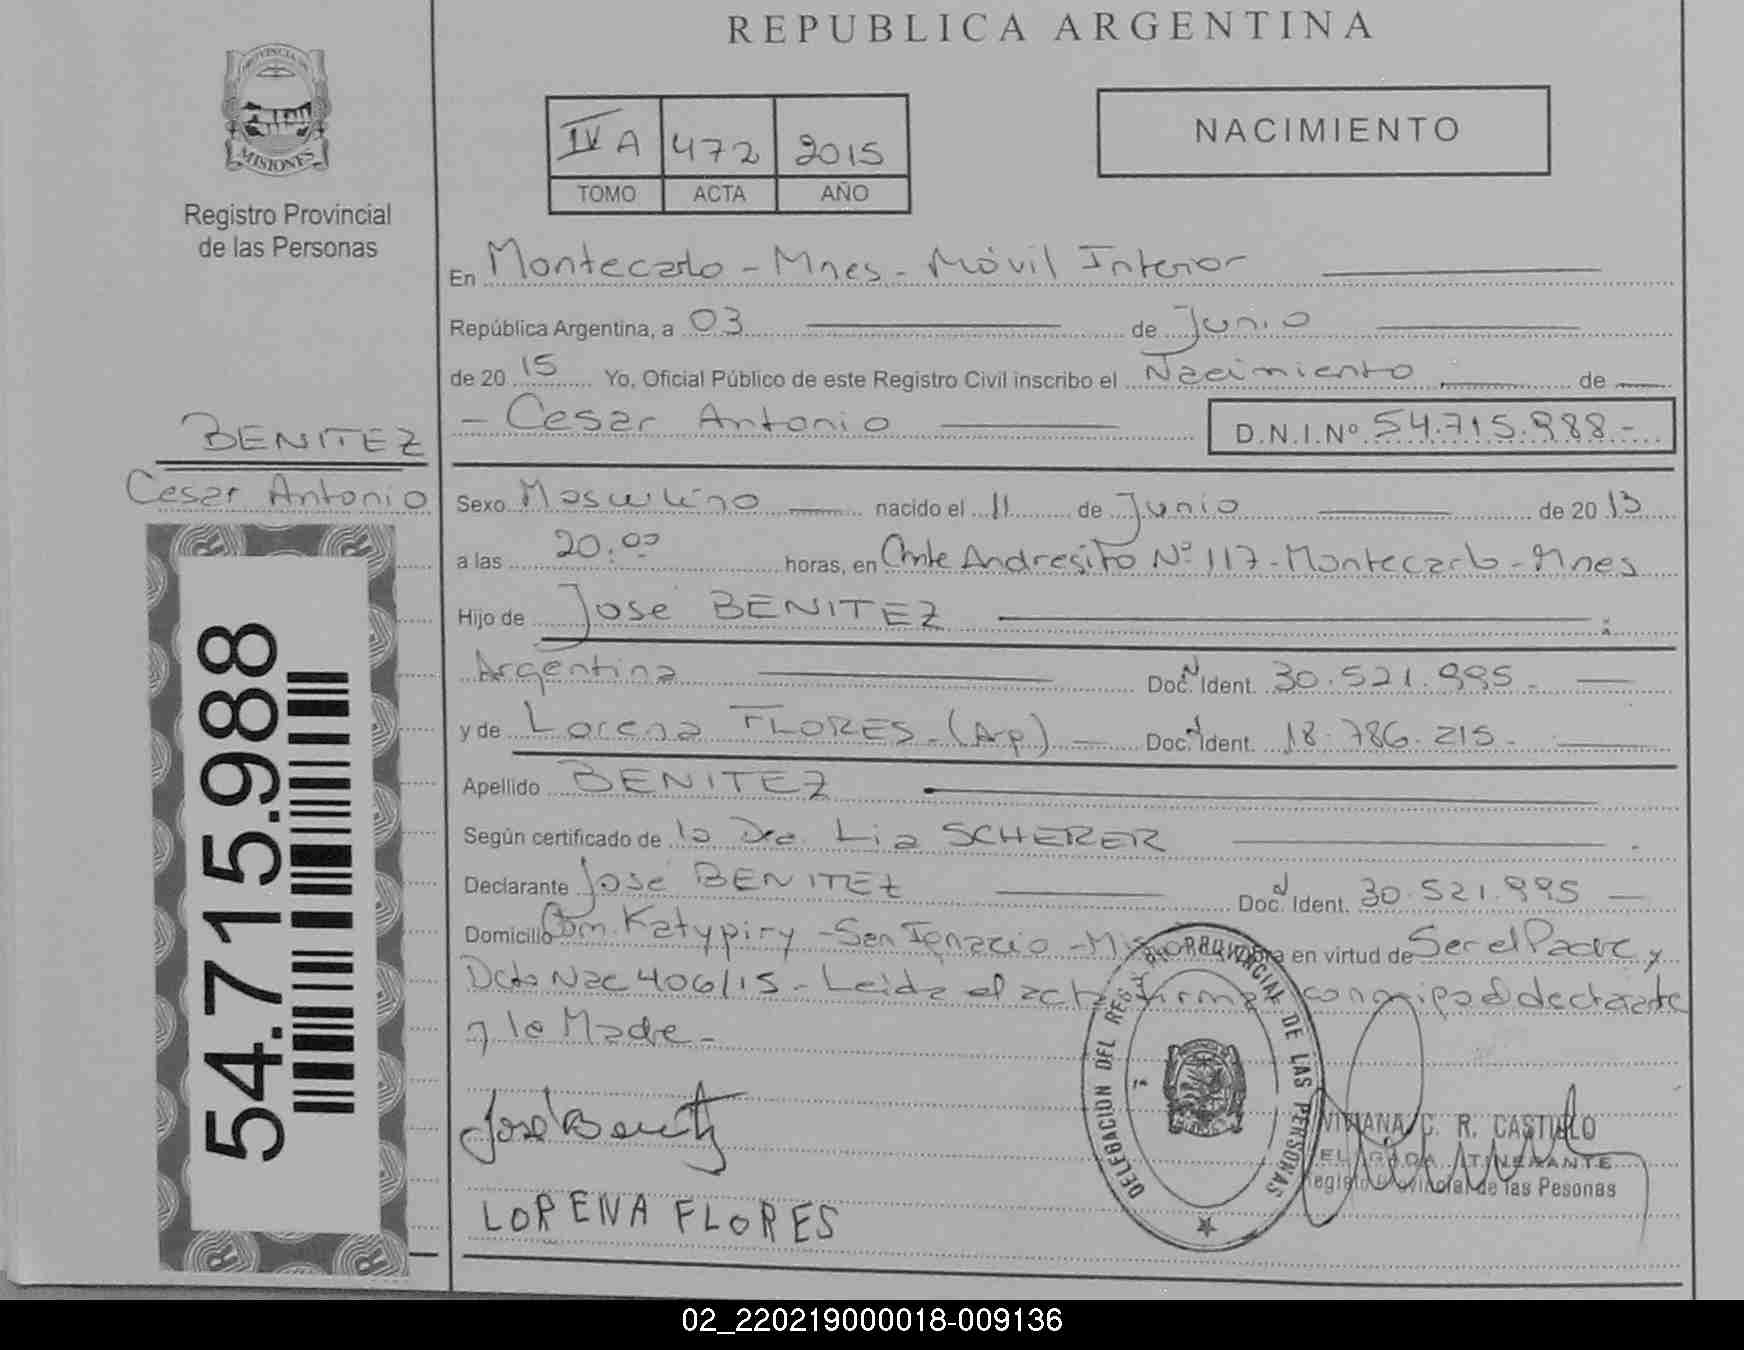 REPUBLICA ARGENTINA
PROVINCIA DE
MISIONES
Registro Provincial
de las Personas
IV A 472 2015
TOMO ACTA AÑO
NACIMIENTO
En Montecarlo - Mnes - Móvil Interior
República Argentina, a 03 de Junio
de 20 15 Yo, Oficial Público de este Registro Civil inscribo el Nacimiento de
- Cesar Antonio
D.N.I.Nº 54.715.988.-
BENITEZ
Cesar Antonio
Sexo Masculino nacido el 11 de Junio de 20 13
a las 20:00 horas, en Cmte Andresito Nº 117 - Montecarlo - Mnes
Hijo de José BENITEZ
Argentina Doc. Ident. 30.521.995.
y de Lorena FLORES - (Ap) - Doc. Ident. 18.786.215.
Apellido BENITEZ
Según certificado de la Dra. Lia SCHERER
Declarante José BENITEZ Doc. Ident. 30.521.995
Domicilio Com. Katypiry - San Ignacio - Obra en virtud de Ser el Padre y
Dcto Nac 406/15 - Leída el acta firma conmigo el declarante
y la Madre -
José Benitez
LORENA FLORES
DELEGACION DEL REG. PROVINCIAL DE LAS PERSONAS
VIVIANA C. R. CASTILLO
DELEGADA ITINERANTE
Registro Provincial de las Pesonas
54.715.988
02_220219000018-009136